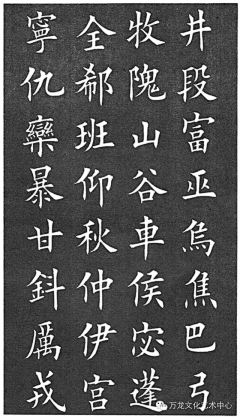 井段富巫烏焦巴弓
牧隗山谷車侯宓蓬
全郗班仰秋仲伊宮
寧仇欒暴甘鈄厲戎
万龙文化艺术中心